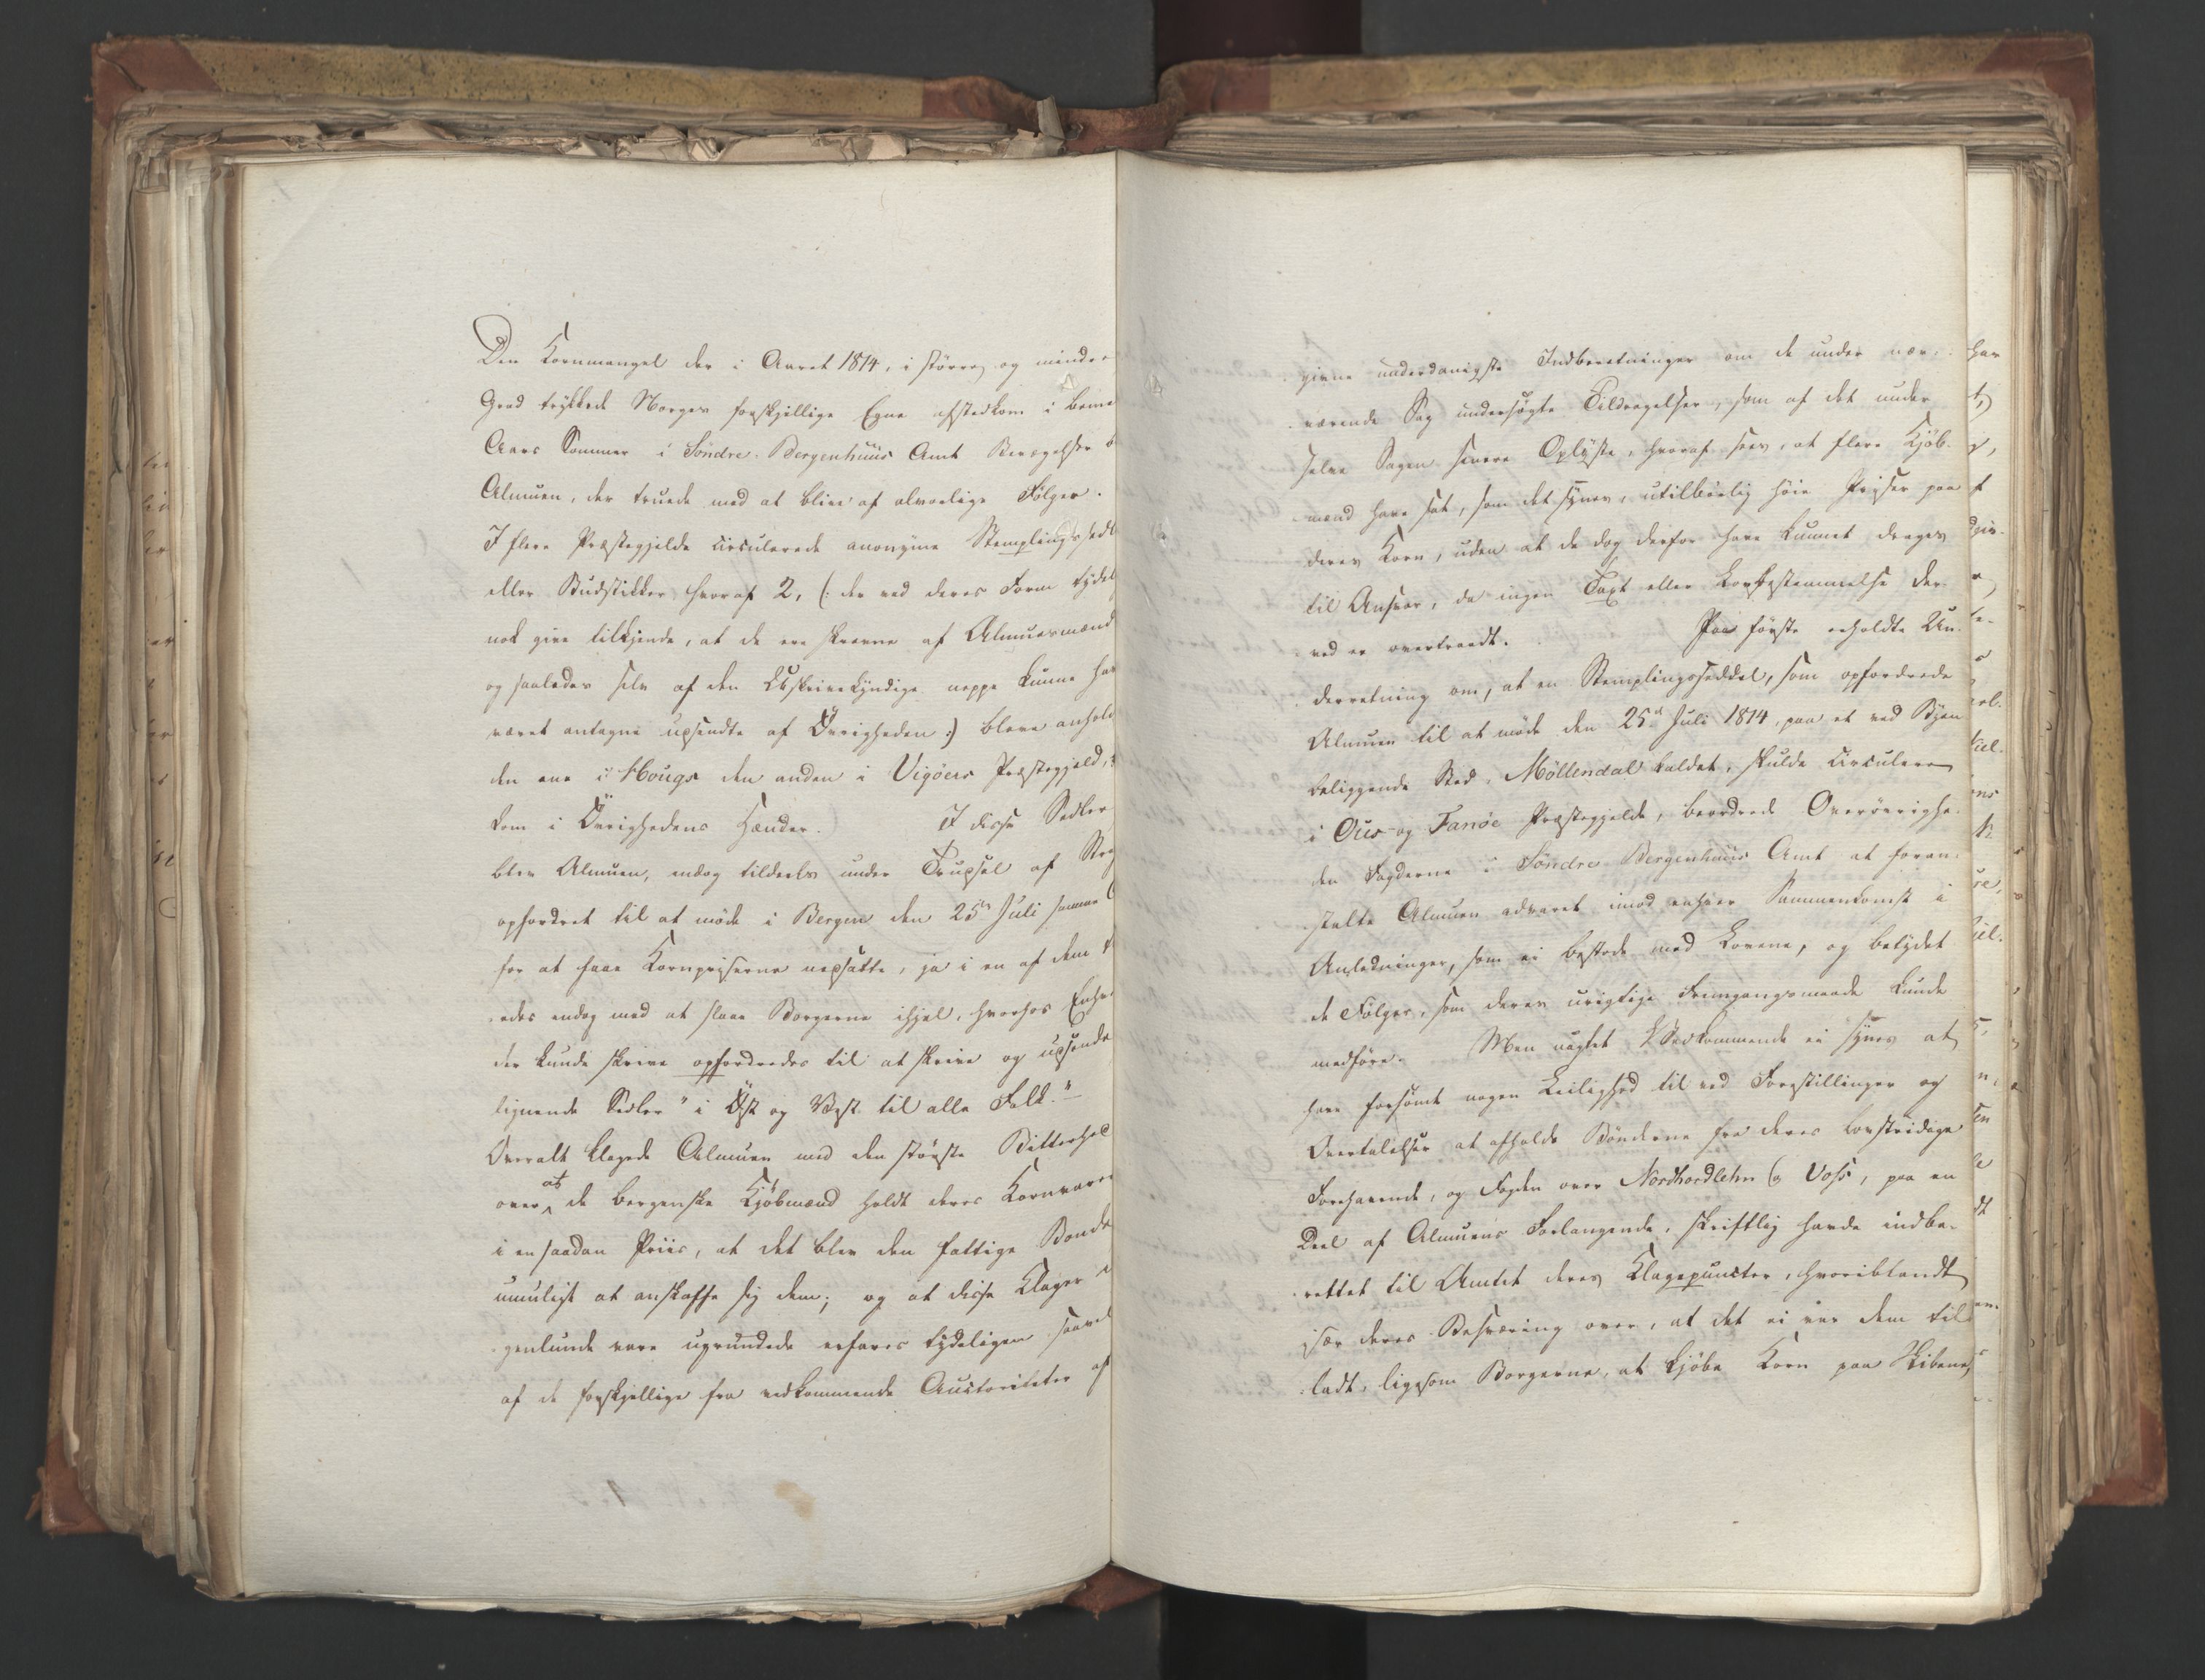 Den Kornmangel der i Aaret 1814, i större og mindre
Grad trykkede Norges forskjellige Egne afstedkom i bem
Aars Sommer i Söndre-Bergenhuus Amt Bevægelser b
Almuen, der truede med at blive af alvorlige Fölger.
I flere Præstegjelde circulerede anonyme Stemplingssedl
eller Budstikker hvoraf 2, (: der ved deres Form tydel
nok give tilkjende, at de ere skrevne af Almuesmænd
og saaledes selv af den Uskrivekyndige neppe kunne hav
været antagne udsendte af Övrigheden :) bleve anhold
den ene i Hougs den anden i Vigöers Præstegjeld,
kom i Övrighedens Hænder. I disse Sedler
blev Almuen, endog tildeels under Trudsel af
opfordret til at möde i Bergen den 25de Juli samme
for at faae Kornpriserne nedsatte, ja i en af dem t
edes endog med at slaae Borgerne ihjel, hvorhos Enhv
der kunde skrive opfordredes til at skrive og udsende
lignende Sedler "i Öst og Vest til alle Folk."
Overalt klagede Almuen med den störste Bitterhed
over at de bergenske Kjöbmænd holdt deres Kornvarer
i en saadan Priis, at det blev den fattige Bonde
umuligt at anskaffe sig dem; og at disse Klager
genlunde vare ugrundede erfares tydeligen saavel
af de forskjellige fra vedkommende Auctoriteter af
givne underdanigste Indberetninger om de under nær-
værende Sag undersögte Tildragelser, som af det under
selve Sagen senere Oplyste, hvoraf sees, at flere Kjöb-
mænd have sat, som det synes, utilbörlig höie Priser paa
deres Korn, uden at de dog derfor have kunnet drages
til Ansvar, da ingen Taxt eller Lovbestemmelse der-
ved er overtraadt. Paa förste erholdte Un-
derretning om, at en Stemplingsseddel, som opfordrede
Almuen til at möde den 25d Juli 1814, paa et ved Byen
beliggende Sted, Möllendal kaldet, skulde circulere
i Ous og Fanöe Præstegjelde, beordrede Överövrighe-
den Fogderne i Söndre Bergenhuus Amt at foran-
stalte Almuen advaret imod enhver Sammenkomst i
Anledninger, som ei bestode med Lovene, og betydet
de Fölger, som deres urigtige Fremgangsmaade kunde
medföre. Men uagtet Vedkommende ei synes at
have forsömt nogen Leilighed til ved Forestillinger og
Overtalelser at afholde Bönderne fra deres lovstridige
Forehavende, og Fogden over Nordhordlehn og Voss, paa en
Deel af Almuens Forlangende, skriftlig havde indbe-
rettet til Amtet deres Klagepuncter, hvoriblandt
især deres Besværing over, at det ei var dem til-
ladt, ligesom Borgerne, at kjöbe Korn paa Skibene,